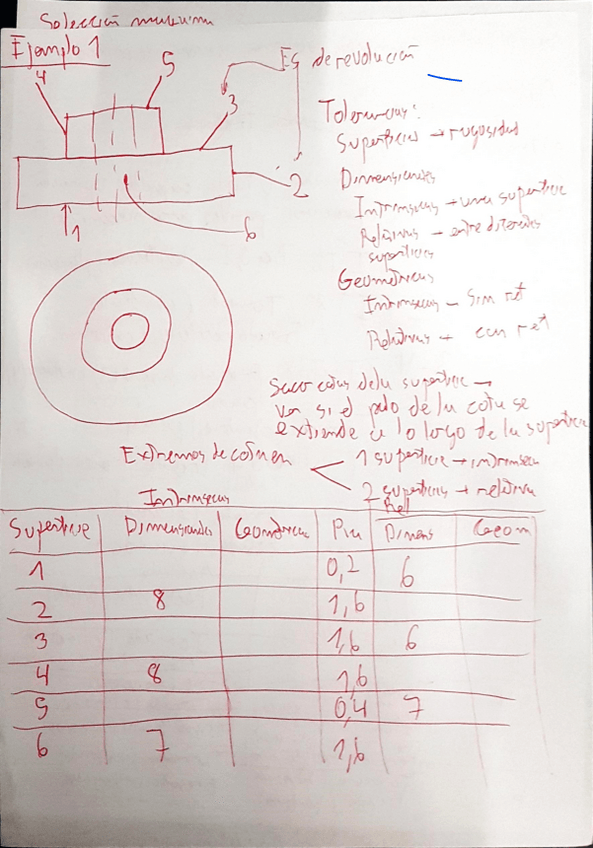 Selección
Ejemplo 1
4
5
Es de revolución
3
2
1
6
Tolerancias:
Superficies → rugosidad
Dimensionales
Intrinsecas → una superficie
Relativas → entre diferentes
superficies
Geometricas
Intrinsecas → Sin ref
Relativas → con ref
Sacar cotas de la superficie →
Ver si el palo de la cota se
extiende a lo largo de la superficie
Extremos de cota en
1 superficie → intrinseca
2 superficies → relativa
Intrinsecas
Rel
Superficie Dimensionales Geometricas Dimens Geom
1 0,2 6
2 8 1,6
3 1,6 6
4 8 1,6
5 0,4 7
6 7 1,6